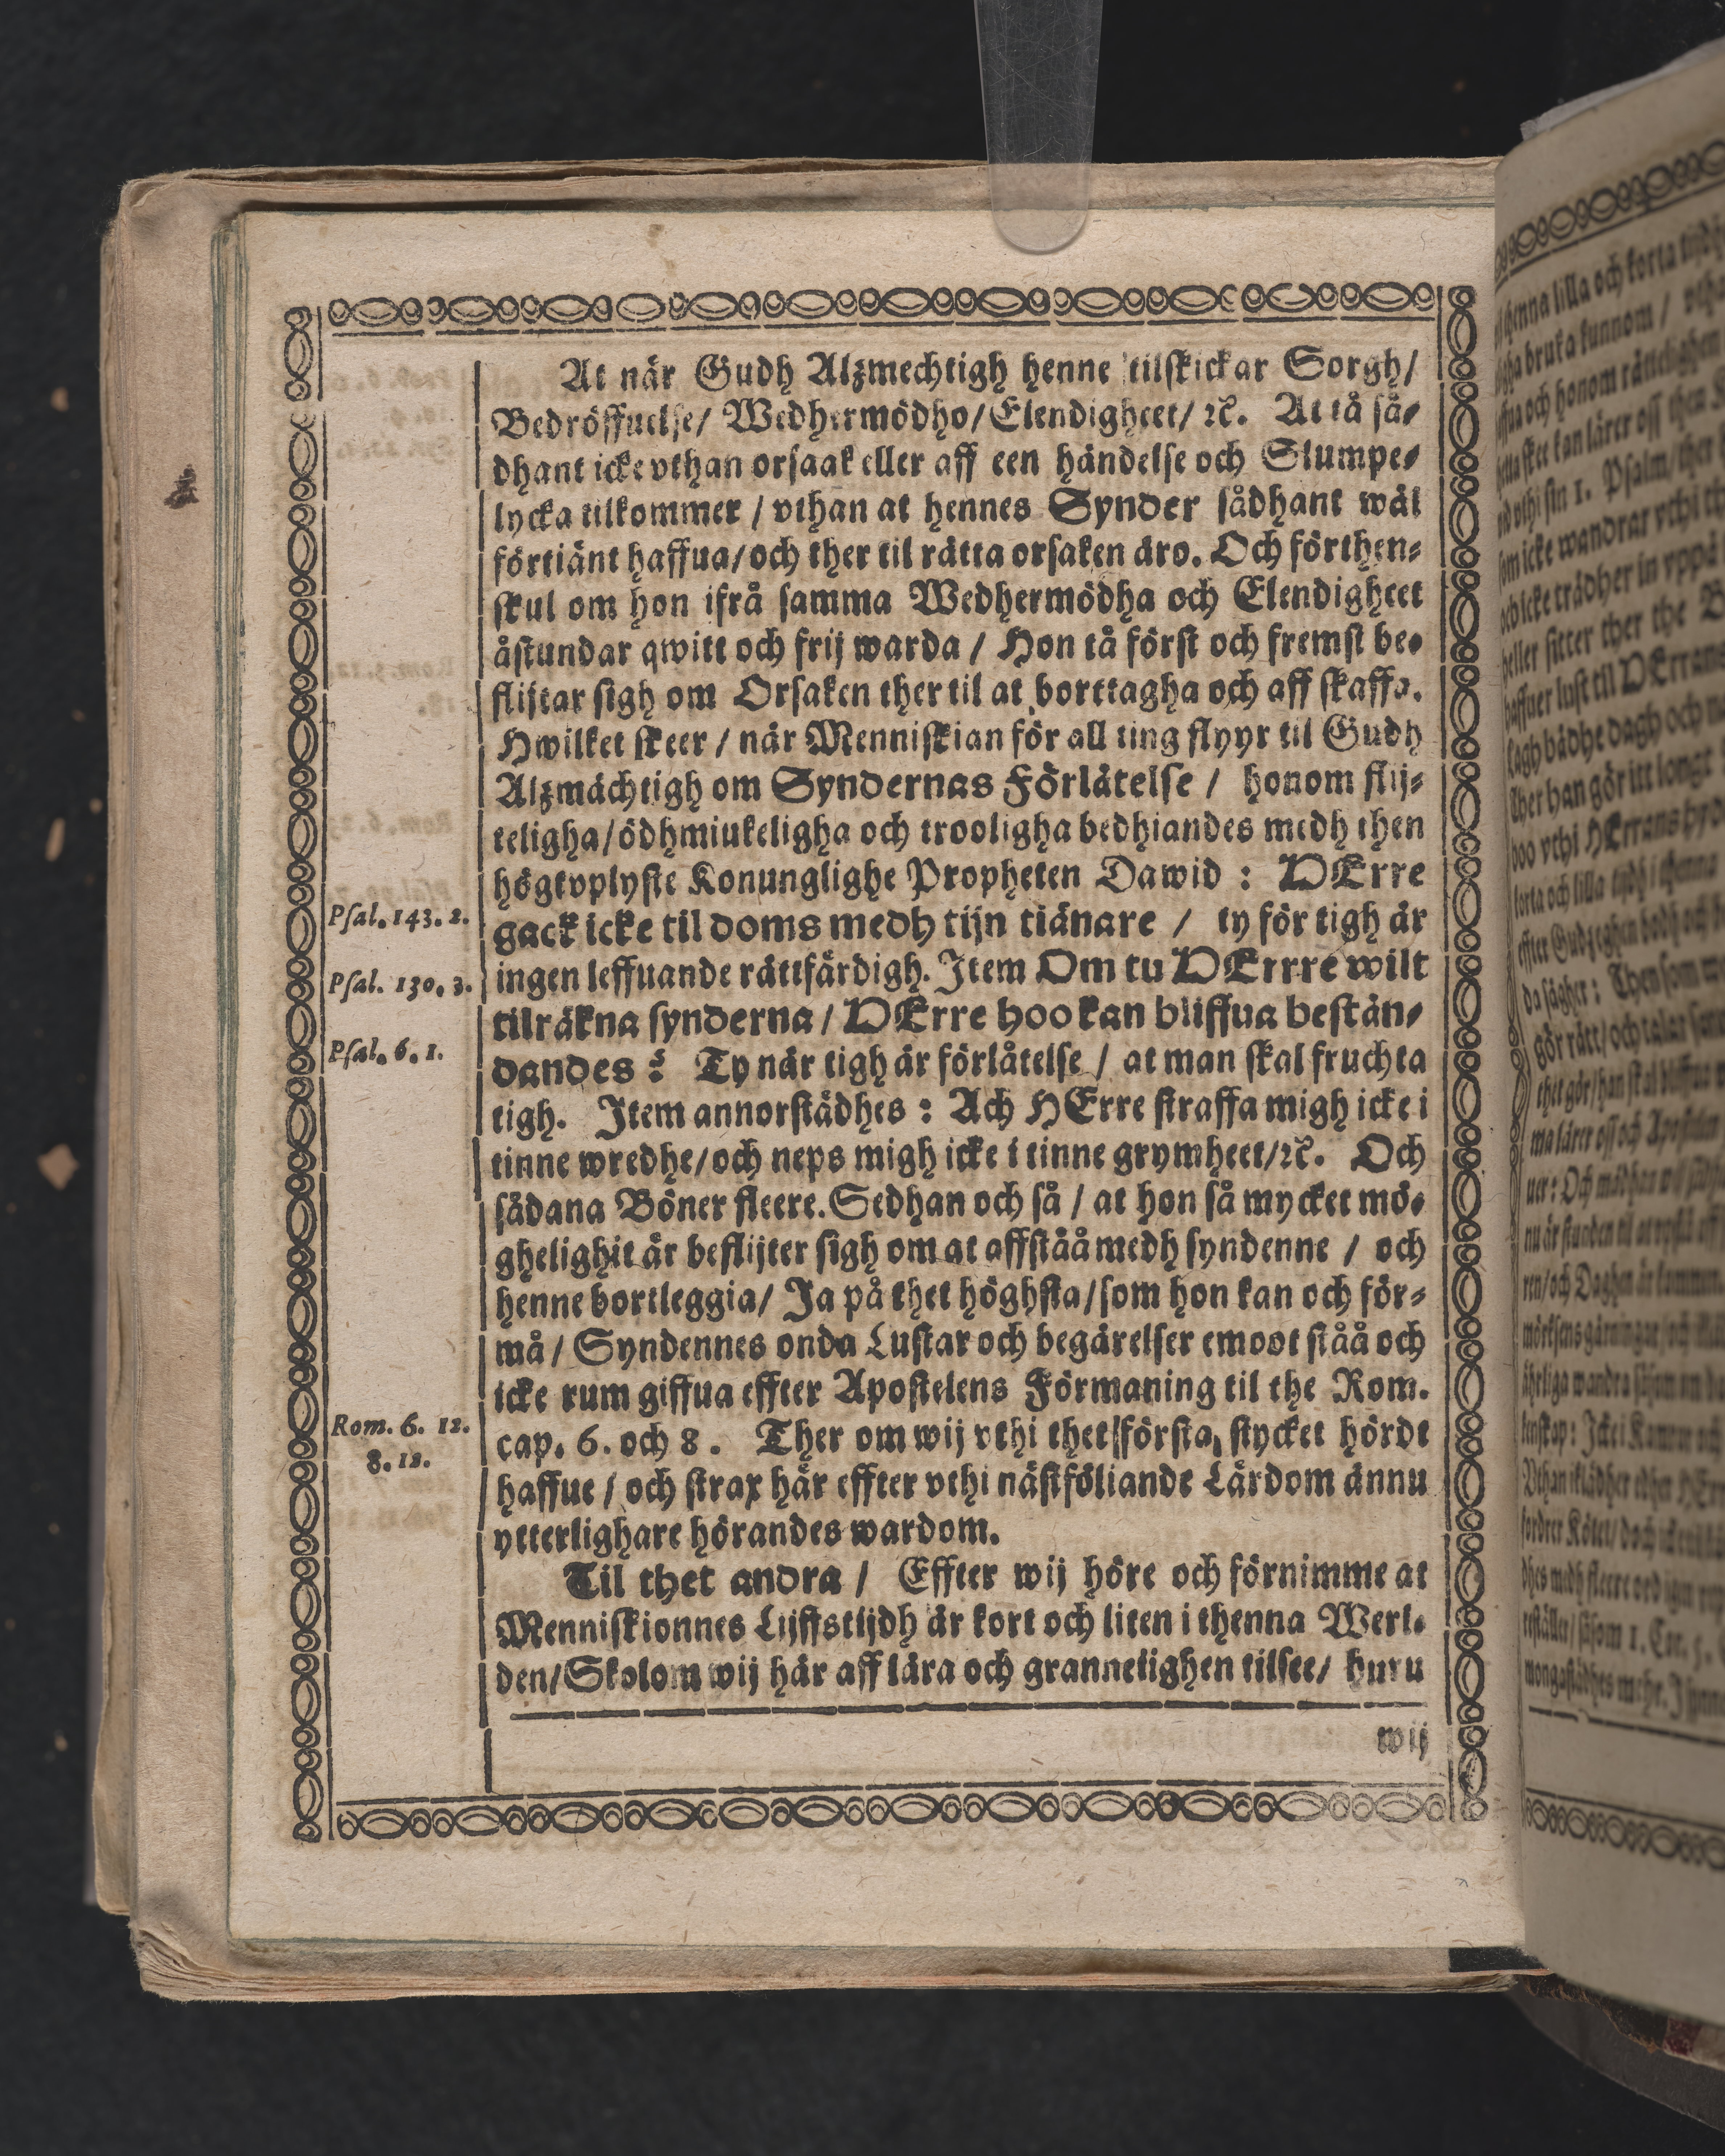 At när Gudh Alzmechtigh henne tilskickar Sorgh/
Bedröffuelse/ Wedhermödho/ Elendigheet/ ꝛc. At tå så-
dhant icke vthan orsaak eller aff een händelse och Slumpe-
lycka tilkommer / vthan at hennes Synder sådhant wäl
förtiänt haffua/ och ther til rätta orsaken äro. Och förthen-
skul om hon ifrå samma Wedhermödha och Elendigheet
åstundar qwitt och frij warda / Hon tå först och fremst be-
flijtar sigh om Orsaken ther til at borttagha och aff skaffa.
Hwilket skeer / när Menniskian för all ting flyyr til Gudh
Alzmächtigh om Syndernas Förlåtelse / honom flij-
teligha/ ödhmiukeligha och trooligha bedhiandes medh then
högtvplyste Konunglighe Propheten Dawid : HErre
Psal. 143. 2.
gack icke til doms medh tijn tiänare / ty för tigh är
Psal. 130. 3.
ingen leffuande rättfärdigh. Item Om tu HErrre wilt
tilräkna synderna / HErre hoo kan bliffua bestån-
Psal. 6. 1.
dandes ? Ty när tigh är förlåtelse / at man skal fruchta
tigh. Item annorstädhes : Ach HErre straffa migh icke i
tinne wredhe/ och neps migh icke i tinne grymheet/ ꝛc. Och
sådana Böner fleere. Sedhan och så / at hon så mycket mö-
ghelighit är beflijter sigh om at affståå medh syndenne / och
henne bortleggia/ Ja på thet höghsta/ som hon kan och för-
må / Syndennes onda Lustar och begärelser emoot ståå och
icke rum giffua effter Apostelens Förmaning til the Rom.
Rom. 6. 12.
8. 12.
cap. 6. och 8. Ther om wij vthi thet första stycket hördt
haffue / och strax här effter vthi nästföliande Lärdom ännu
ytterlighare hörandes wardom.
Til thet andra / Effter wij höre och förnimme at
Menniskionnes Lijffstijdh är kort och liten i thenna Werl-
den/ Skolom wij här aff lära och granneligen tilsee/ huru
wij